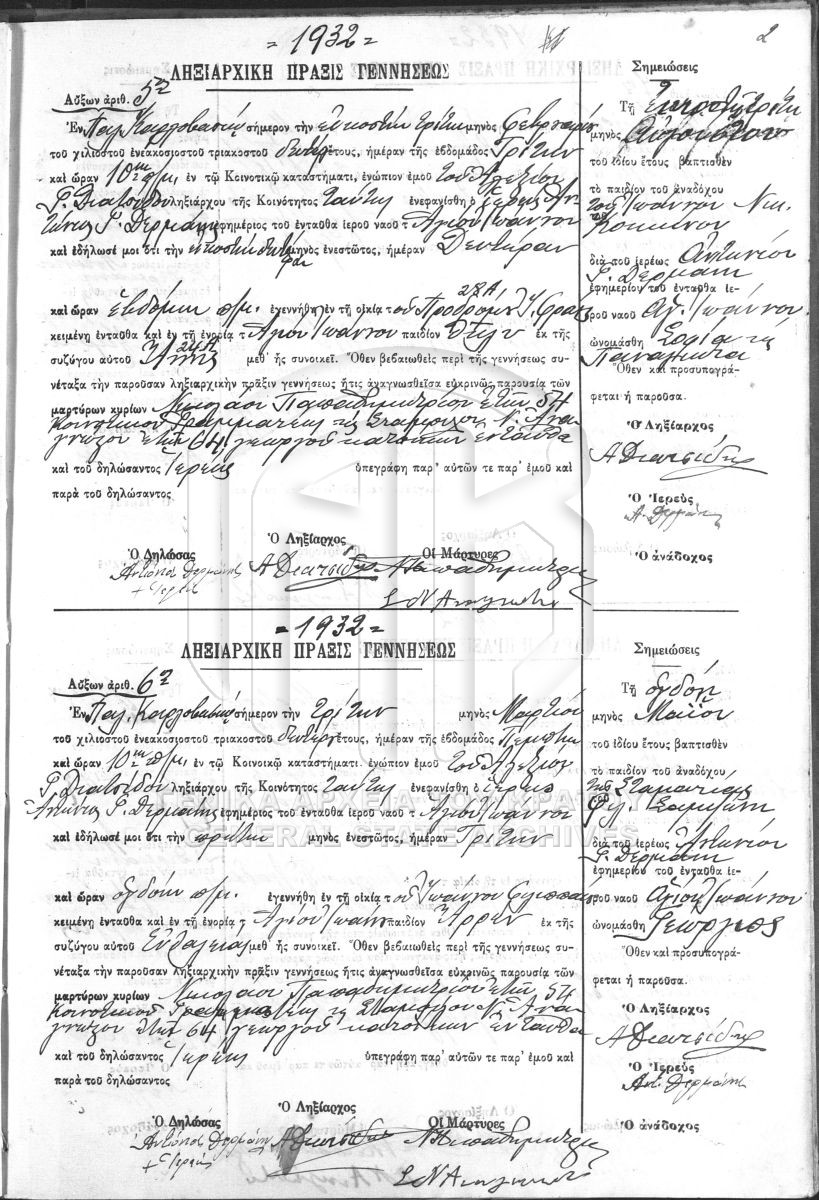 = 1932 =
2
ΛΗΞΙΑΡΧΙΚΗ ΠΡΑΞΙΣ ΓΕΝΝΗΣΕΩΣ
Αὔξων ἀριθ. 5η
Ἐν Παλ. Καρλοβασίῳ σήμερον τὴν εἰκοστὴν τρίτην μηνὸς Φεβρουαρίου
τοῦ χιλιοστοῦ ἐνεακοσιοστοῦ τριακοστοῦ δευτέρου ἔτους, ἡμέραν τῆς ἑβδομάδος Τρίτην
καὶ ὥραν 10ην π.μ. ἐν τῷ Κοινοτικῷ καταστήματι, ἐνώπιον ἐμοῦ τοῦ Ἀλεξίου
Γ. Διατσίδου ληξιάρχου τῆς Κοινότητος ταύτης ἐνεφανίσθη ὁ ἱερεὺς Ἀν
τώνιος Γ. Δερμάνης ἐφημέριος τοῦ ἐνταῦθα ἱεροῦ ναοῦ τ. Ἁγίου Ἰωάννου
καὶ ἐδήλωσέ μοι ὅτι τὴν εἰκοστὴν δευτέραν μηνὸς ἐνεστῶτος, ἡμέραν Δευτέραν
καὶ ὥραν ἑβδόμην π.μ. ἐγεννήθη ἐν τῇ οἰκίᾳ τοῦ Προδρόμου
κειμένῃ ἐνταῦθα καὶ ἐν τῇ ἐνορίᾳ τ. Ἁγίου Ἰωάννου παιδίον Θῆλυ ἐκ τῆς
συζύγου αὐτοῦ Ἄννης μεθ' ἧς συνοικεῖ. Ὅθεν βεβαιωθεὶς περὶ τῆς γεννήσεως συ-
νέταξα τὴν παροῦσαν ληξιαρχικὴν πρᾶξιν γεννήσεως ἥτις ἀναγνωσθεῖσα εὐκρινῶς παρουσίᾳ τῶν
μαρτύρων κυρίων Νικολάου Παπαδημητρίου ἐτῶν 54
κοινοτικοῦ Γραμματέως κ. Σταματίου Ν. Ἀνα
γνώστου ἐτῶν 64 γεωργοῦ κατοίκων ἐνταῦθα
καὶ τοῦ δηλώσαντος Ἱερέως ὑπεγράφη παρ' αὐτῶν τε παρ' ἐμοῦ καὶ
παρὰ τοῦ δηλώσαντος
Ὁ Δηλώσας Ὁ Ληξίαρχος Οἱ Μάρτυρες
Ἀντώνιος Δερμάνης Α Διατσίδης Ν Παπαδημητρίου
+ Ἱερεὺς
Σ Ν Αναγνώστου
Σημειώσεις
Τῇ Εἰκοστῇ Τρίτῃ
μηνὸς Αὐγούστου
τοῦ ἰδίου ἔτους βαπτισθὲν
τὸ παιδίον τοῦ ἀναδόχου
τοῦ Ἰωάννου Νικ.
Κοκκίνου
διὰ τοῦ ἱερέως Ἀντωνίου
Γ. Δερμάνη
ἐφημερίου τοῦ ἐνταῦθα ἱε-
ροῦ ναοῦ Ἁγ. Ἰωάννου
ὠνομάσθη Σοφία
Παναγιώτα
Ὅθεν καὶ προσυπογρά-
φεται ἡ παροῦσα.
Ὁ Ληξίαρχος
Α Διατσίδης
Ὁ Ἱερεὺς
Α. Δερμάνης
Ὁ ἀνάδοχος
= 1932 =
ΛΗΞΙΑΡΧΙΚΗ ΠΡΑΞΙΣ ΓΕΝΝΗΣΕΩΣ
Αὔξων ἀριθ. 6η
Ἐν Παλ. Καρλοβασίῳ σήμερον τὴν τρίτην μηνὸς Μαρτίου
τοῦ χιλιοστοῦ ἐνεακοσιοστοῦ τριακοστοῦ δευτέρου ἔτους, ἡμέραν τῆς ἑβδομάδος Πέμπτην
καὶ ὥραν 10ην π.μ. ἐν τῷ Κοινωτικῷ καταστήματι. ἐνώπιον ἐμοῦ τοῦ Ἀλεξίου
Γ. Διατσίδου ληξιάρχου τῆς Κοινότητος ταύτης ἐνεφανίσθη ὁ ἱερεὺς
Ἀντώνιος Γ. Δερμάνης ἐφημέριος τοῦ ἐνταῦθα ἱεροῦ ναοῦ τ. Ἁγίου Ἰωάννου
καὶ ἐδήλωσέ μοι ὅτι τὴν πρώτην μηνὸς ἐνεστῶτος, ἡμέραν Τρίτην
καὶ ὥραν ὀγδόην π.μ. ἐγεννήθη ἐν τῇ οἰκίᾳ τοῦ Ἰωάννου Φιλιππαίου
κειμένῃ ἐνταῦθα καὶ ἐν τῇ ἐνορίᾳ τ. Ἁγίου Ἰωάννου παιδίον Ἄρρεν ἐκ τῆς
συζύγου αὐτοῦ Εὐδαλείας μεθ' ἧς συνοικεῖ. Ὅθεν βεβαιωθεὶς περὶ τῆς γεννήσεως συ-
νέταξα τὴν παροῦσαν ληξιαρχικὴν πρᾶξιν γεννήσεως ἥτις ἀναγνωσθεῖσα εὐκρινῶς παρουσίᾳ τῶν
μαρτύρων κυρίων Νικολάου Παπαδημητρίου ἐτῶν 54
κοινοτικοῦ Γραμματέως κ. Σταματίου Ν. Ἀνα
γνώστου ἐτῶν 64 γεωργοῦ κατοίκων ἐνταῦθα
καὶ τοῦ δηλώσαντος Ἱερέως ὑπεγράφη παρ' αὐτῶν τε παρ' ἐμοῦ καὶ
παρὰ τοῦ δηλώσαντος
Ὁ Δηλώσας Ὁ Ληξίαρχος Οἱ Μάρτυρες
Ἀντώνιος Δερμάνης Α Διατσίδης Ν Παπαδημητρίου
+ Ἱερεὺς
Σ Ν Αναγνώστου
Σημειώσεις
Τῇ ὀγδόῃ
μηνὸς Μαΐου
τοῦ ἰδίου ἔτους βαπτισθὲν
τὸ παιδίον τοῦ ἀναδόχου
τῆς Σταματίας
διὰ τοῦ ἱερέως Ἀντωνίου
Γ. Δερμάνη
ἐφημερίου τοῦ ἐνταῦθα ἱε-
ροῦ ναοῦ Ἁγίου Ἰωάννου
ὠνομάσθη Γεώργιος
Ὅθεν καὶ προσυπογρά-
φεται ἡ παροῦσα.
Ὁ Ληξίαρχος
Α Διατσίδης
Ὁ Ἱερεὺς
Ἀντ. Δερμάνης
Ὁ ἀνάδοχος
ΓΕΝΙΚΑ ΑΡΧΕΙΑ ΤΟΥ ΚΡΑΤΟΥΣ
GENERAL STATE ARCHIVES